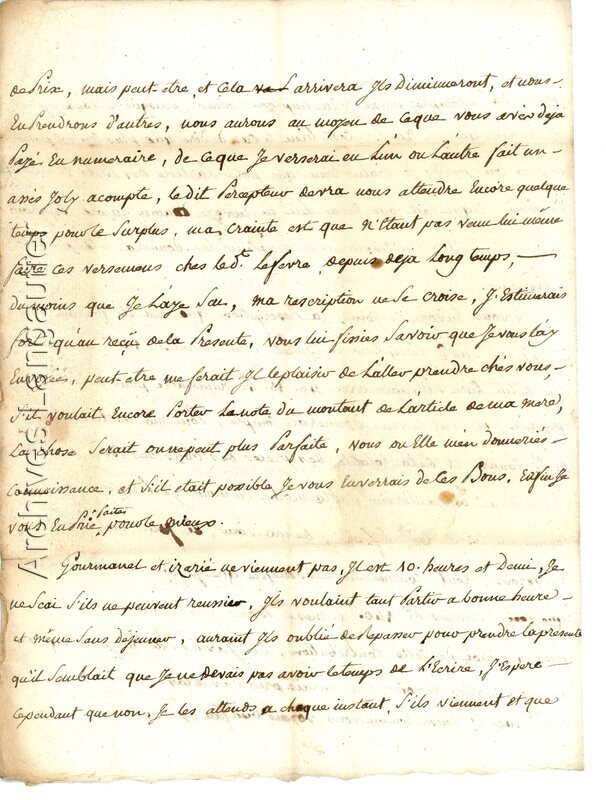 de Prix, mais peut etre, et cela va l arrivera Jls Diminueront, et nous
En Prendrons d'autres, nous aurons au moyen de ceque vous avés deja
Payé En numeraire, de ceque Je verserai en L'un ou L'autre fait un
assés Joly acompte, le dit Percepteur devra nous attendre Encore quelque
temps pour le Surplus, ma crainte est que N'Etant pas venu lui même
faire ces versemens chez le d.t Lefevre depuis deja Long temps,
du moins que Je L'aye Sçu, ma rescription ne Se croise, J'Estimerais
fort qu'au reçu de la Presente, vous lui fissies Savoir que Je vous L'ay
Envoyées, peut-etre me ferait Jl le plaisir de L'aller prendre chés vous,
S'il voulait Encore Porter La note du montant de L'article de ma mere,
La chose Serait on ne peut plus Parfaite, vous ou Elle m'en donneriés
Connoissance, et S'il etait possible Je vous Enverrais de ces Bons. Enfin Je
vous En Prie, faites pour le mieux.
Gourmanel et izarié ne viennent pas, Jl est 10. heures et Demi, Je
ne Scai S'ils ne peuvent reussir, Jls voulaint tant Partir a bonne heure
et même Sans dejeuner, auraint Jls oublié de Repasser pour prendre la presente
qu'il Semblait que Je ne devais pas avoir le temps de L'Ecrire, J'Espere
Cependant que non, Je les attends a chaque instant, S'ils viennent et que
Archives Langautier